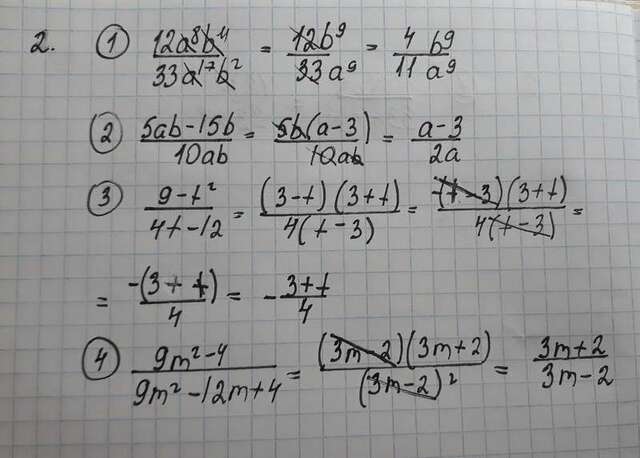 2. ① 12a⁸b⁴/33a¹⁷b² = 12b⁹/33a⁹ = 4b⁹/11a⁹
② 5ab-15b/10ab = 5b(a-3)/10ab = a-3/2a
③ 9-t²/4t-12 = (3-t)(3+t)/4(t-3) = -(t-3)(3+t)/4(t-3) =
= -(3+t)/4 = - 3+t/4
④ 9m²-4/9m²-12m+4 = (3m-2)(3m+2)/(3m-2)² = 3m+2/3m-2